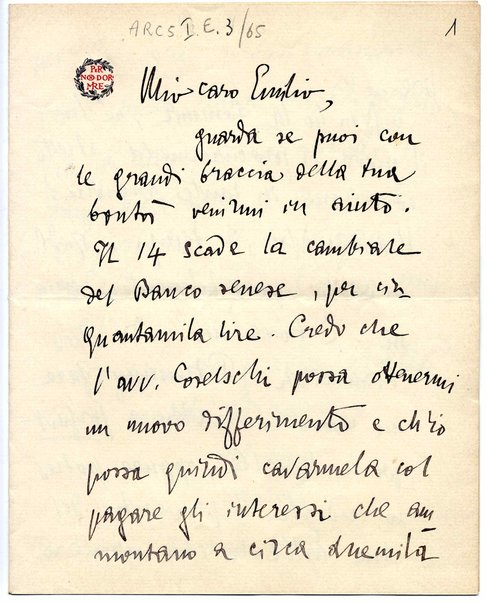 ARCS I. E. 3/65
1
PER
NON DOR
MIRE
Mio caro Emilio,
guarda se puoi con
le grandi braccia della tua
bontà venirmi in aiuto.
Il 14 scade la cambiale
del Banco senese, per cin
quantamila lire. Credo che
l'avv. Coselschi possa ottenermi
un nuovo differimento e ch'io
possa quindi cavarmela col
pagare gli interessi che am
montano a circa duemila